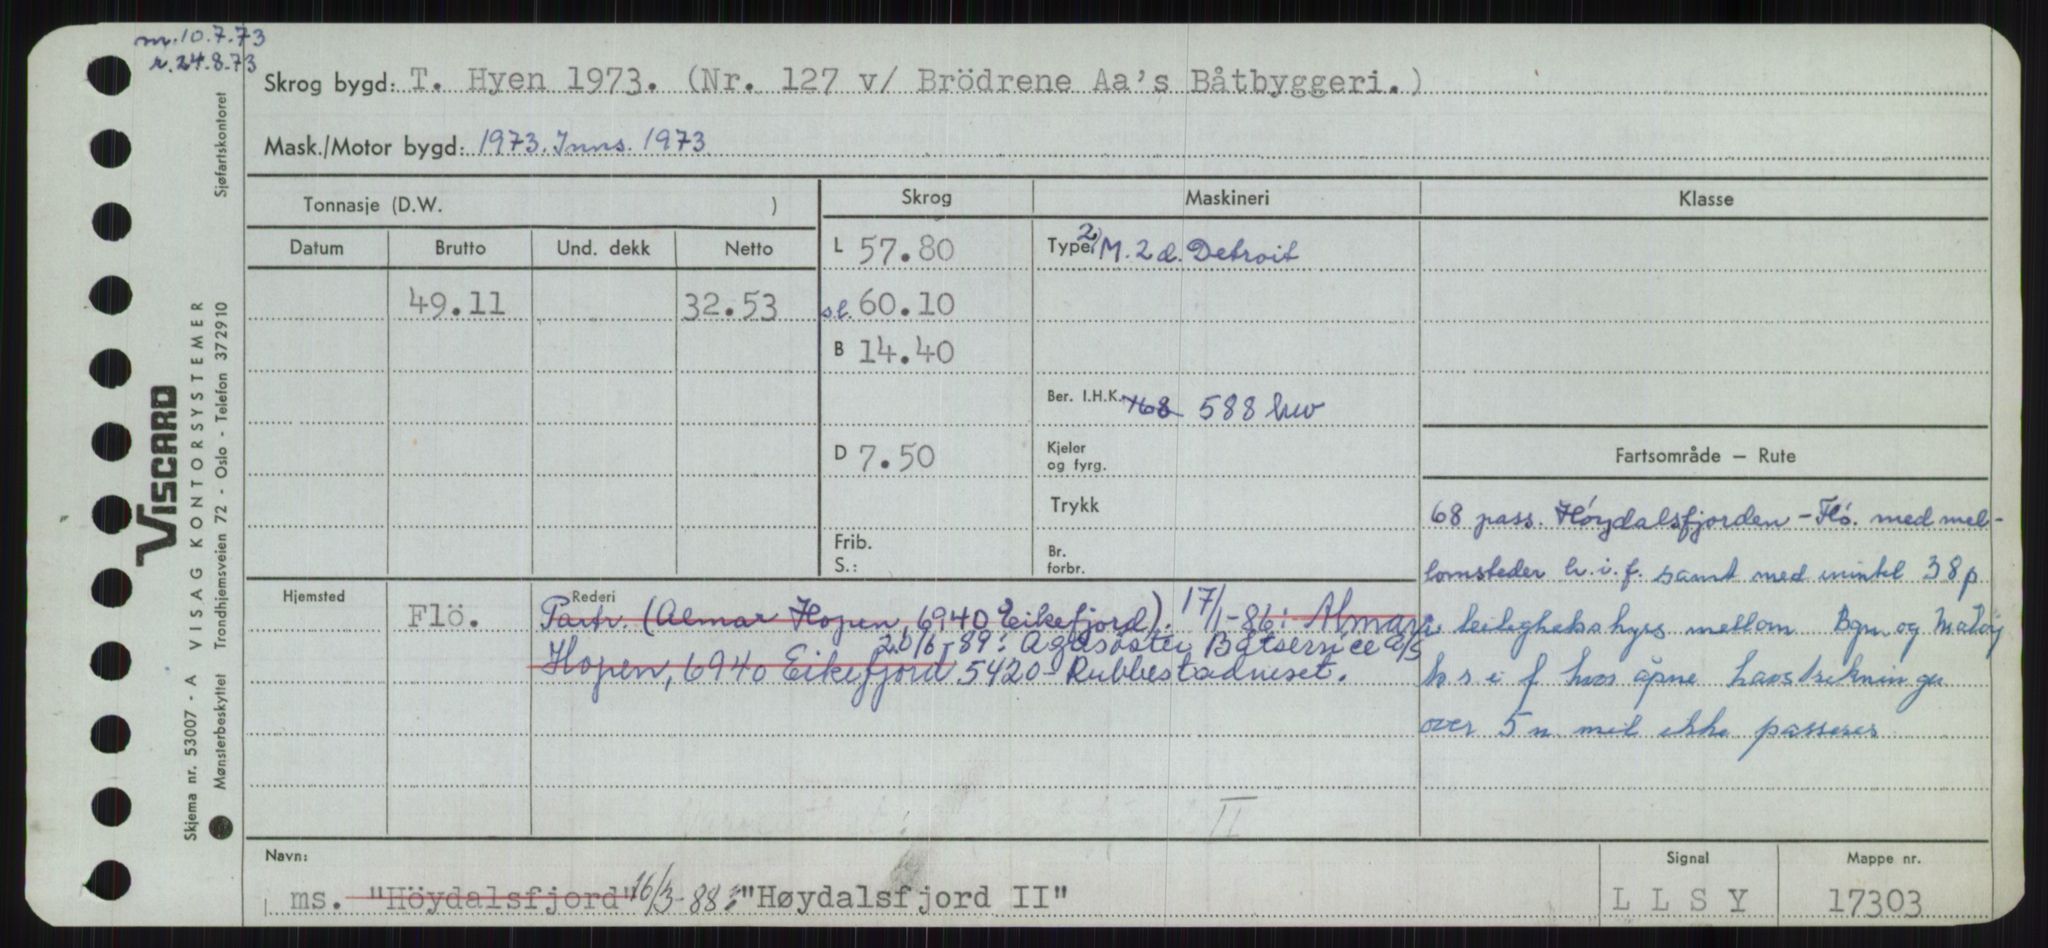 m. 10.7.73
r. 24.8.73
Skrog bygd: T. Hyen 1973. (Nr. 127 v/ Brödrene Aa's Båtbyggeri.)
Mask./Motor bygd: 1973. Inns. 1973
Tonnasje (D.W. )
Skrog
Maskineri
Klasse
Datum Brutto Und. dekk Netto
L 57.80
Type 2) M. 2 d. Detroit
49.11 32.53
s.l. 60.10
B 14.40
Ber. I.H.K. 168 588 hw
D 7.50
Kjeler
og fyrg.
Fartsområde — Rute
Trykk
68 pass. Höydalsfjorden - Flö. med mel-
Frib.
S.:
Br.
forbr.
lomsteder h.i.f. samt med inntil 38 p
Hjemsted
Rederi
Flö.
Partr. (Almar Hopen, 6940 Eikefjord). 17/1-86: Almar
i leilighetsskyss mellom Bgn. og Måløy
20/6-89: Ågasøster Båtservice A/S
Hopen, 6940 Eikefjord 5420 Rubbestadneset.
h s i f hvor åpne havstrekninger
over 5 n mil ikke passeres
II
Navn:
Signal
Mappe nr.
ms. "Höydalsfjord" 16/3-88: "Høydalsfjord II"
L L S Y
17303
VISCARD
VISAG KONTORSYSTEMER
Skjema nr. 53007 - A
Mønsterbeskyttet Trondhjemsveien 72 - Oslo - Telefon 372910
Sjøfartskontoret